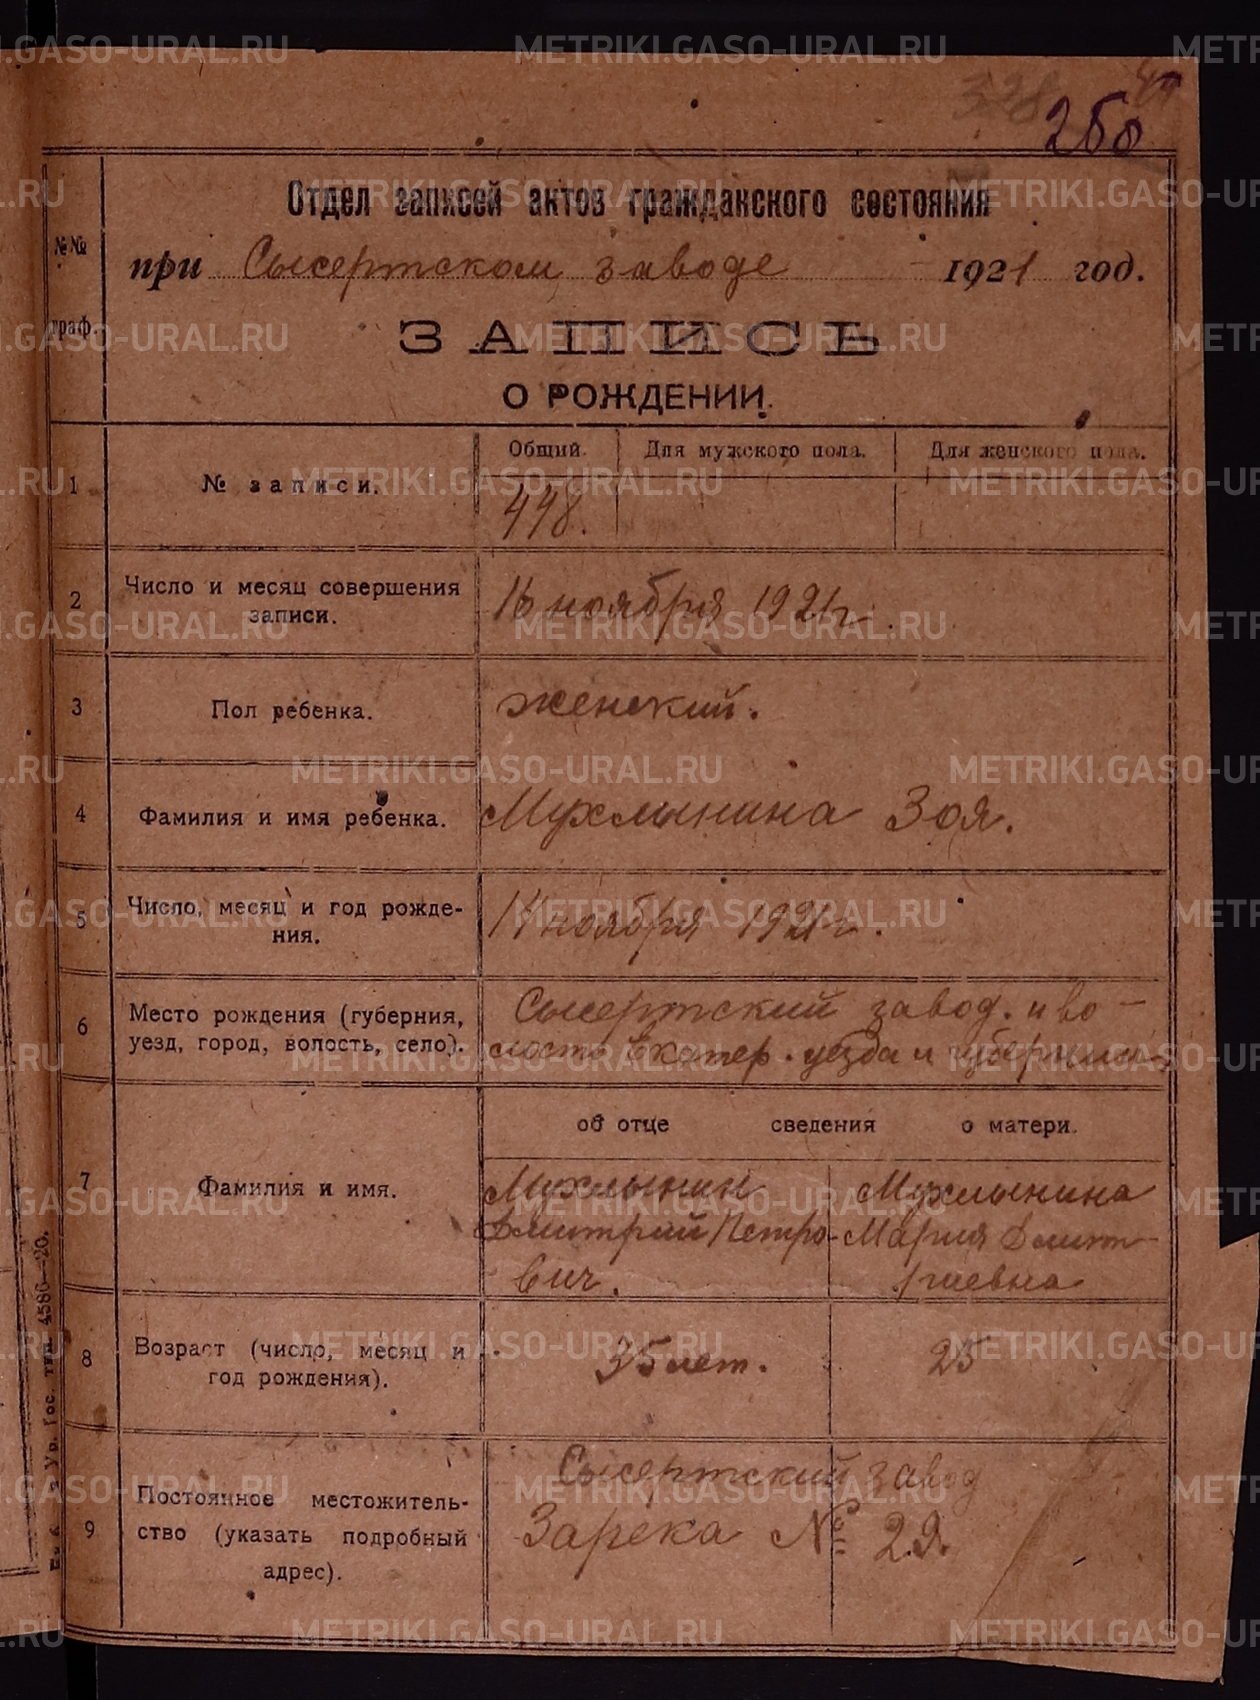 328
268
Отдел записей актов гражданского состояния
№№ граф.
при Сысертском заводе 1921 год.
ЗАПИСЬ
О РОЖДЕНИИ.
1 № записи. Общий. Для мужского пола. Для женского пола.
448.
2 Число и месяц совершения записи. 16 ноября 1921 г.
3 Пол ребенка. женский.
4 Фамилия и имя ребенка. Мухлынина Зоя.
5 Число, месяц и год рожде-
ния. 14 ноября 1921 г.
6 Место рождения (губерния, Сысертский завод. и во-
уезд, город, волость, село). лость Екатер. уезда и губернии
об отце сведения о матери.
7 Фамилия и имя. Мухлынин Мухлынина
Дмитрий Петро- Мария Дмит-
вич. риевна
8 Возраст (число, месяц и 35 лет. 25
год рождения).
Сысертский завод
9 Постоянное местожитель-
ство (указать подробный Зарека № 29.
адрес).
Ур. Гос. тип. 4586—20.
METRIKI.GASO-URAL.RU